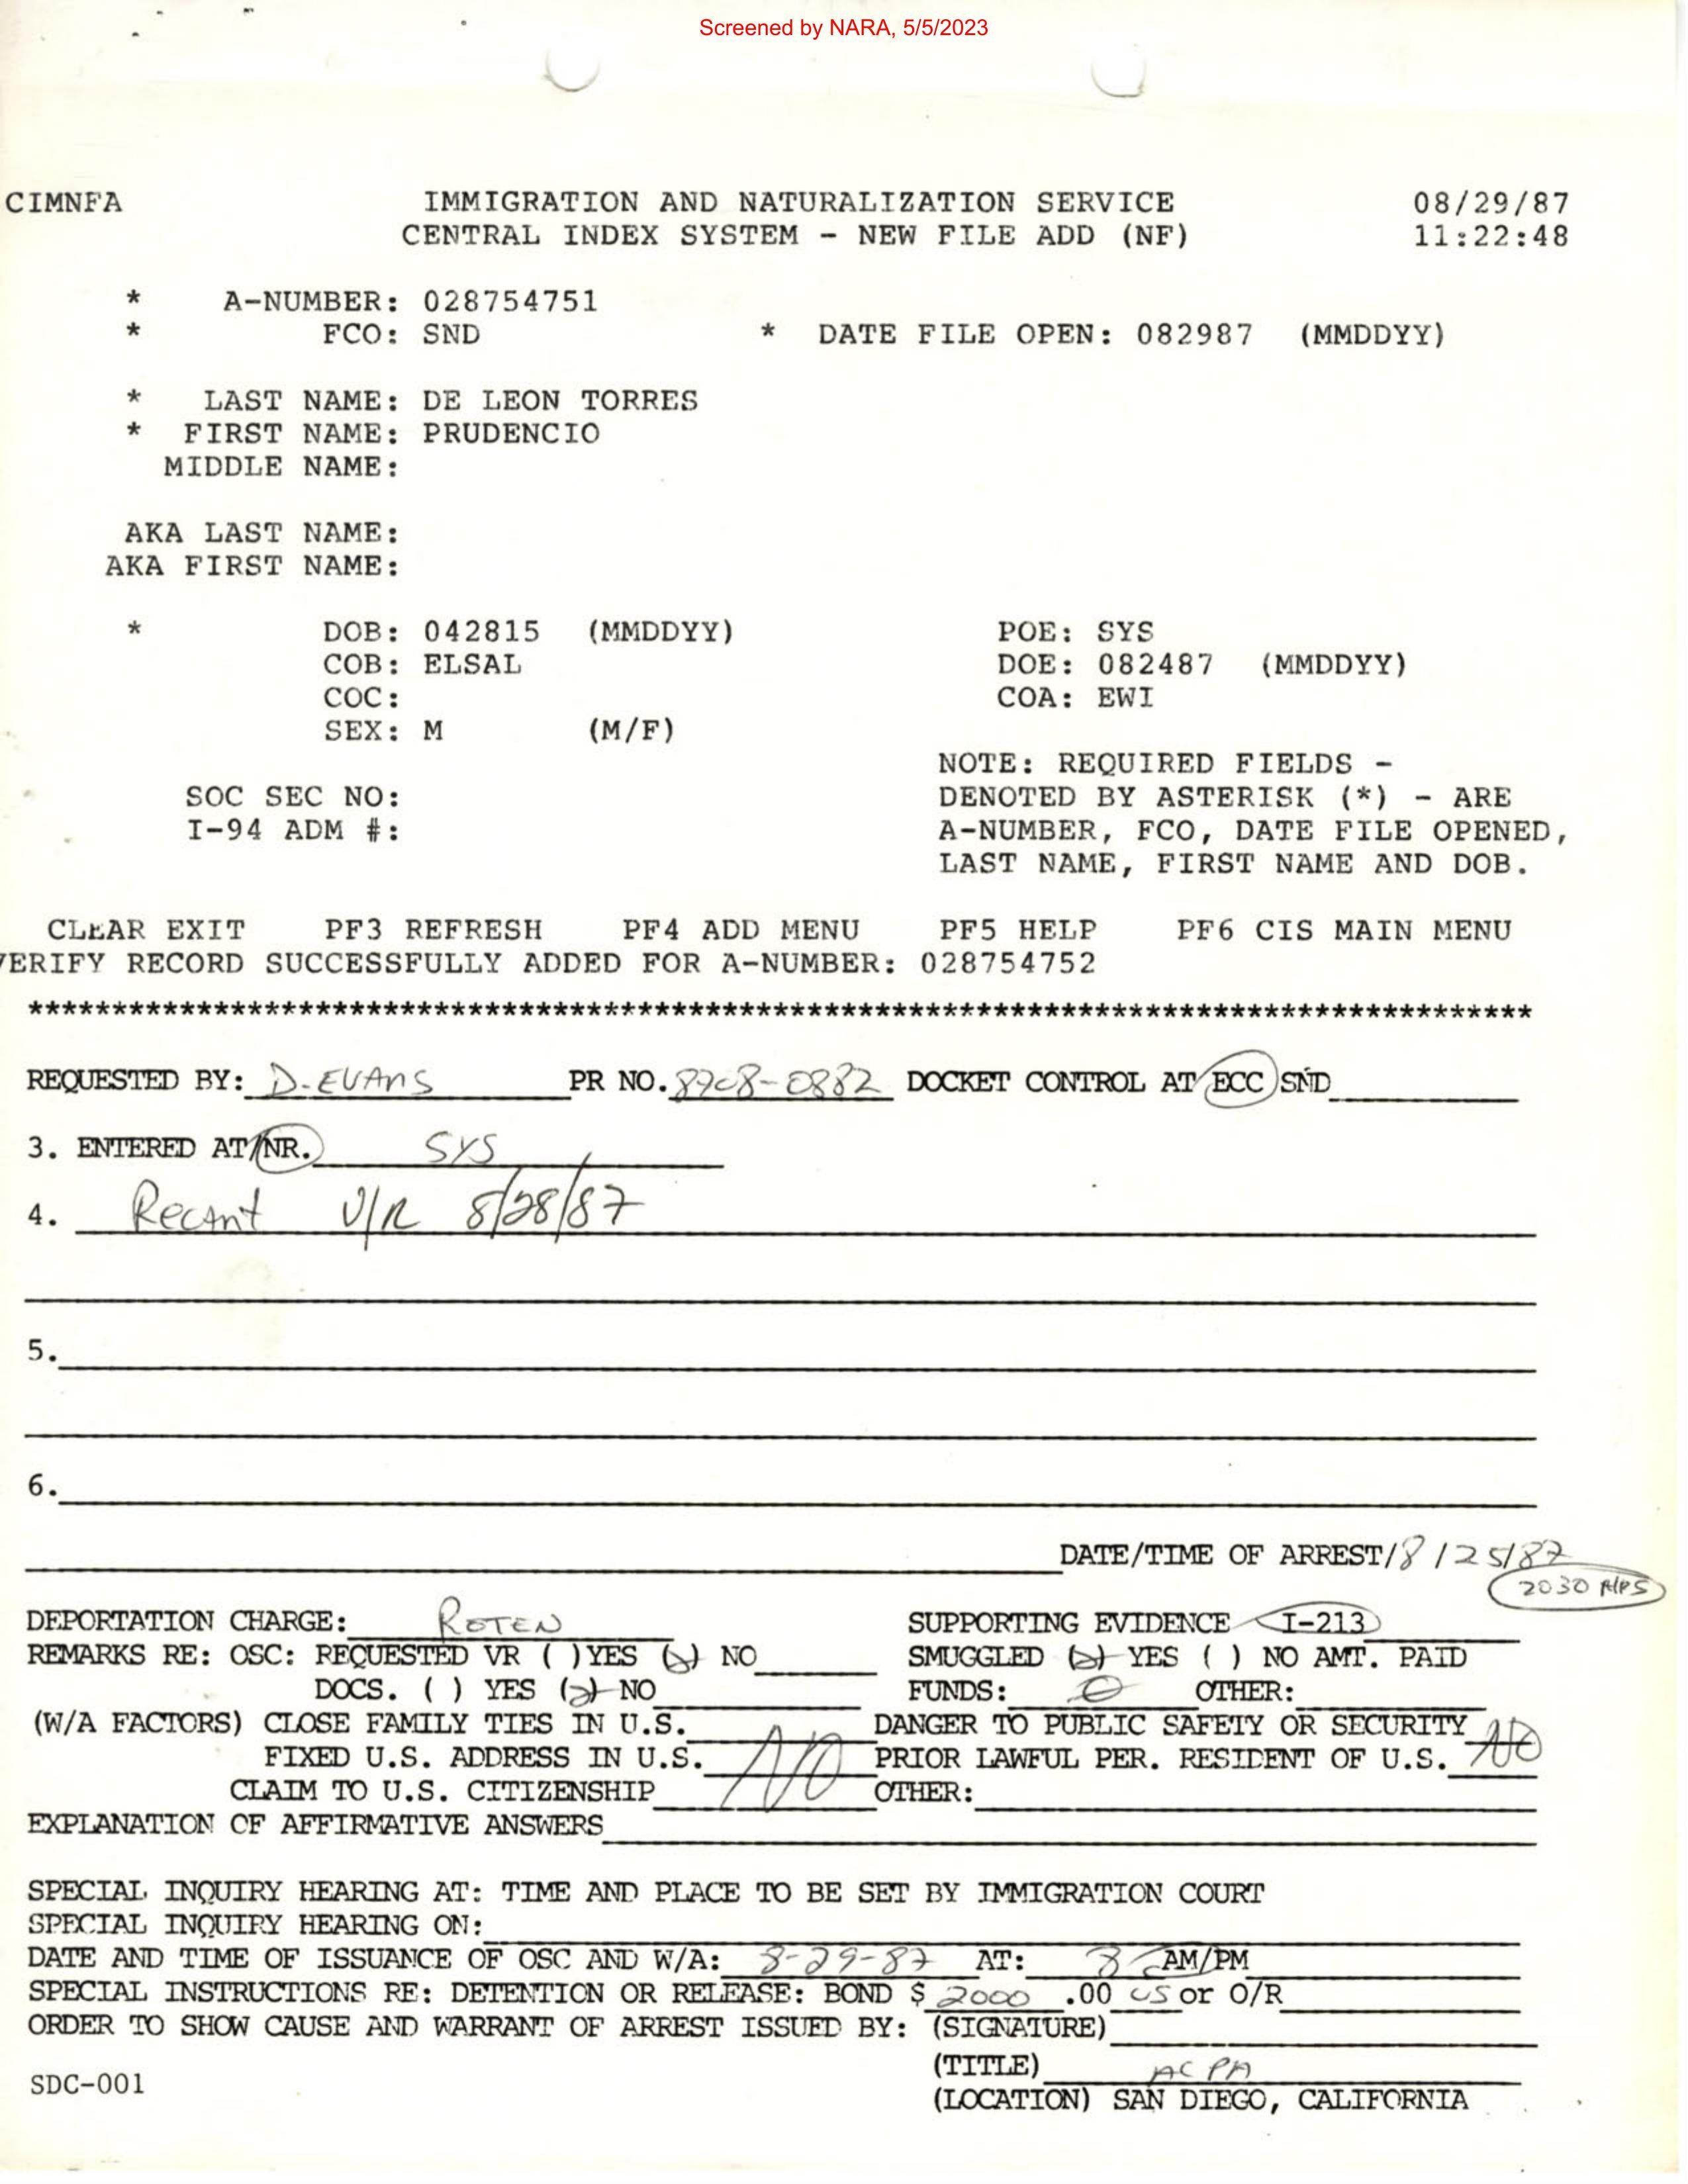 Screened by NARA, 5/5/2023
CIMNFA IMMIGRATION AND NATURALIZATION SERVICE 08/29/87
CENTRAL INDEX SYSTEM - NEW FILE ADD (NF) 11:22:48
* A-NUMBER: 028754751
* FCO: SND * DATE FILE OPEN: 082987 (MMDDYY)
* LAST NAME: DE LEON TORRES
* FIRST NAME: PRUDENCIO
MIDDLE NAME:
AKA LAST NAME:
AKA FIRST NAME:
* DOB: 042815 (MMDDYY) POE: SYS
COB: ELSAL DOE: 082487 (MMDDYY)
COC: COA: EWI
SEX: M (M/F)
NOTE: REQUIRED FIELDS -
SOC SEC NO: DENOTED BY ASTERISK (*) - ARE
I-94 ADM #: A-NUMBER, FCO, DATE FILE OPENED,
LAST NAME, FIRST NAME AND DOB.
CLEAR EXIT PF3 REFRESH PF4 ADD MENU PF5 HELP PF6 CIS MAIN MENU
VERIFY RECORD SUCCESSFULLY ADDED FOR A-NUMBER: 028754752
REQUESTED BY: D-EVANS PR NO. 8708-0882 DOCKET CONTROL AT ECC SND
3. ENTERED AT/NR. SYS
4. Recant V/R 8/28/87
5.
6.
DATE/TIME OF ARREST/8/25/87
2030 HPS
DEPORTATION CHARGE: ROTEN SUPPORTING EVIDENCE I-213
REMARKS RE: OSC: REQUESTED VR ( ) YES (x) NO SMUGGLED (x) YES ( ) NO AMT. PAID
DOCS. ( ) YES (x) NO FUNDS: 0 OTHER:
(W/A FACTORS) CLOSE FAMILY TIES IN U.S. DANGER TO PUBLIC SAFETY OR SECURITY NO
FIXED U.S. ADDRESS IN U.S. NO PRIOR LAWFUL PER. RESIDENT OF U.S.
CLAIM TO U.S. CITIZENSHIP OTHER:
EXPLANATION OF AFFIRMATIVE ANSWERS
SPECIAL INQUIRY HEARING AT: TIME AND PLACE TO BE SET BY IMMIGRATION COURT
SPECIAL INQUIRY HEARING ON:
DATE AND TIME OF ISSUANCE OF OSC AND W/A: 8-29-87 AT: 8 AM/PM
SPECIAL INSTRUCTIONS RE: DETENTION OR RELEASE: BOND $ 2000 .00 US or O/R
ORDER TO SHOW CAUSE AND WARRANT OF ARREST ISSUED BY: (SIGNATURE)
(TITLE) ACPA
SDC-001
(LOCATION) SAN DIEGO, CALIFORNIA